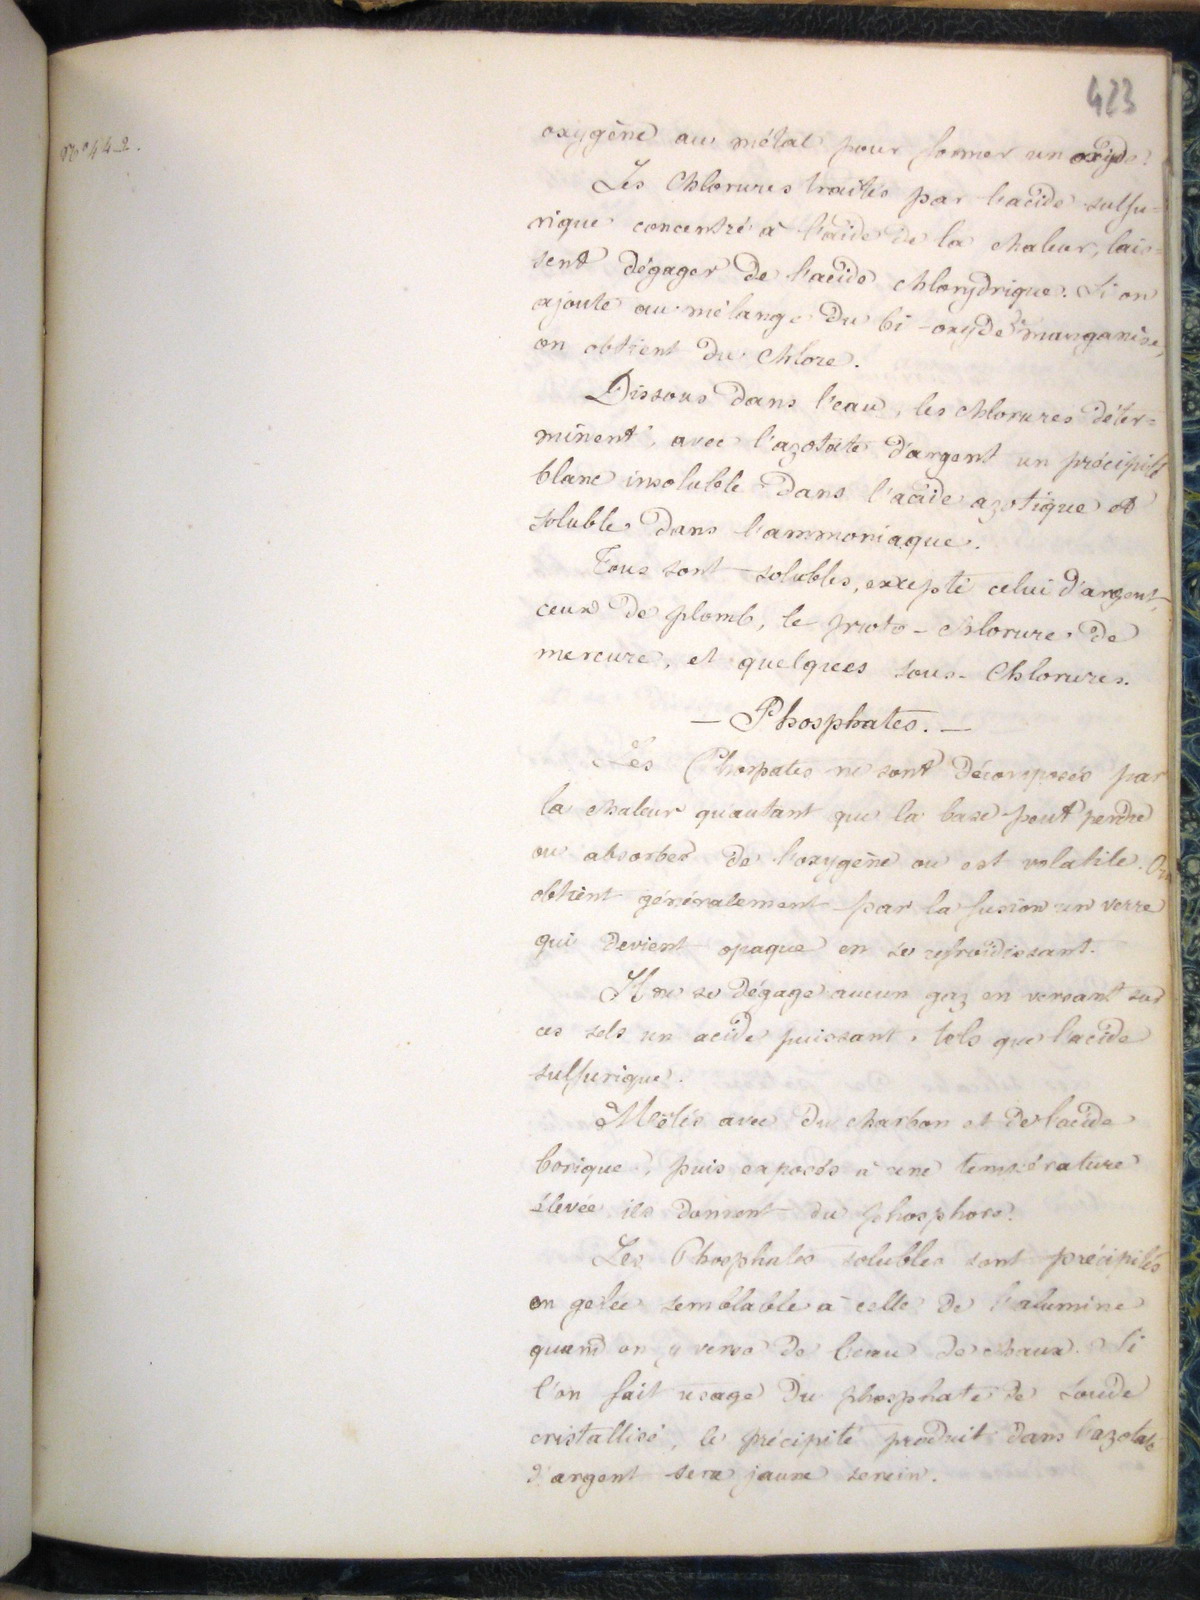 423
N° 442.
oxygène au métal pour former un oxyde.
Les Chlorures traités par l'acide sulfu=
rique concentré à l'aide de la chaleur, lais=
sent dégager de l'acide chlorydrique. Si on
ajoute au mélange du bi-oxyde de manganèse,
on obtient du Chlore.
Dissous dans l'eau, les chlorures déter=
minent, avec l'azotate d'argent un précipité
blanc insoluble dans l'acide azotique et
soluble dans l'ammoniaque.
Tous sont solubles, excepté celui d'argent,
ceux de plomb, le proto-chlorure de
mercure, et quelques sous-Chlorures.
— Phosphates. —
Les Phospates ne sont décomposés par
la chaleur qu'autant que la base peut perdre
ou absorber de l'oxygène ou est volatile. On
obtient généralement par la fusion un verre
qui devient opaque en se refroidissant.
Il ne se dégage aucun gaz en versant sur
ces sels un acide puissant, tels que l'acide
sulfurique.
Mêlés avec du charbon et de l'acide
borique, puis exposés à une température
élevée ils donnent du phosphore.
Les Phosphates solubles sont précipités
en gelée semblable à celle de l'alumine
quand on y verse de l'eau de chaux. Si
l'on fait usage du phosphate de soude
cristallisé, le précipité produit dans l'azotate
d'argent sera jaune serein.